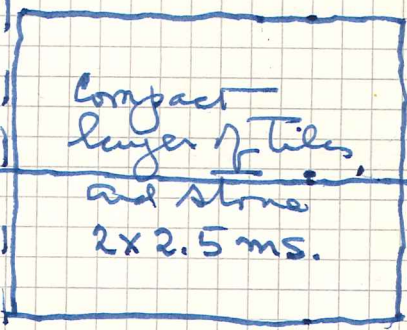 Compact
layer of Tiles,
and stone
2x2.5 ms.